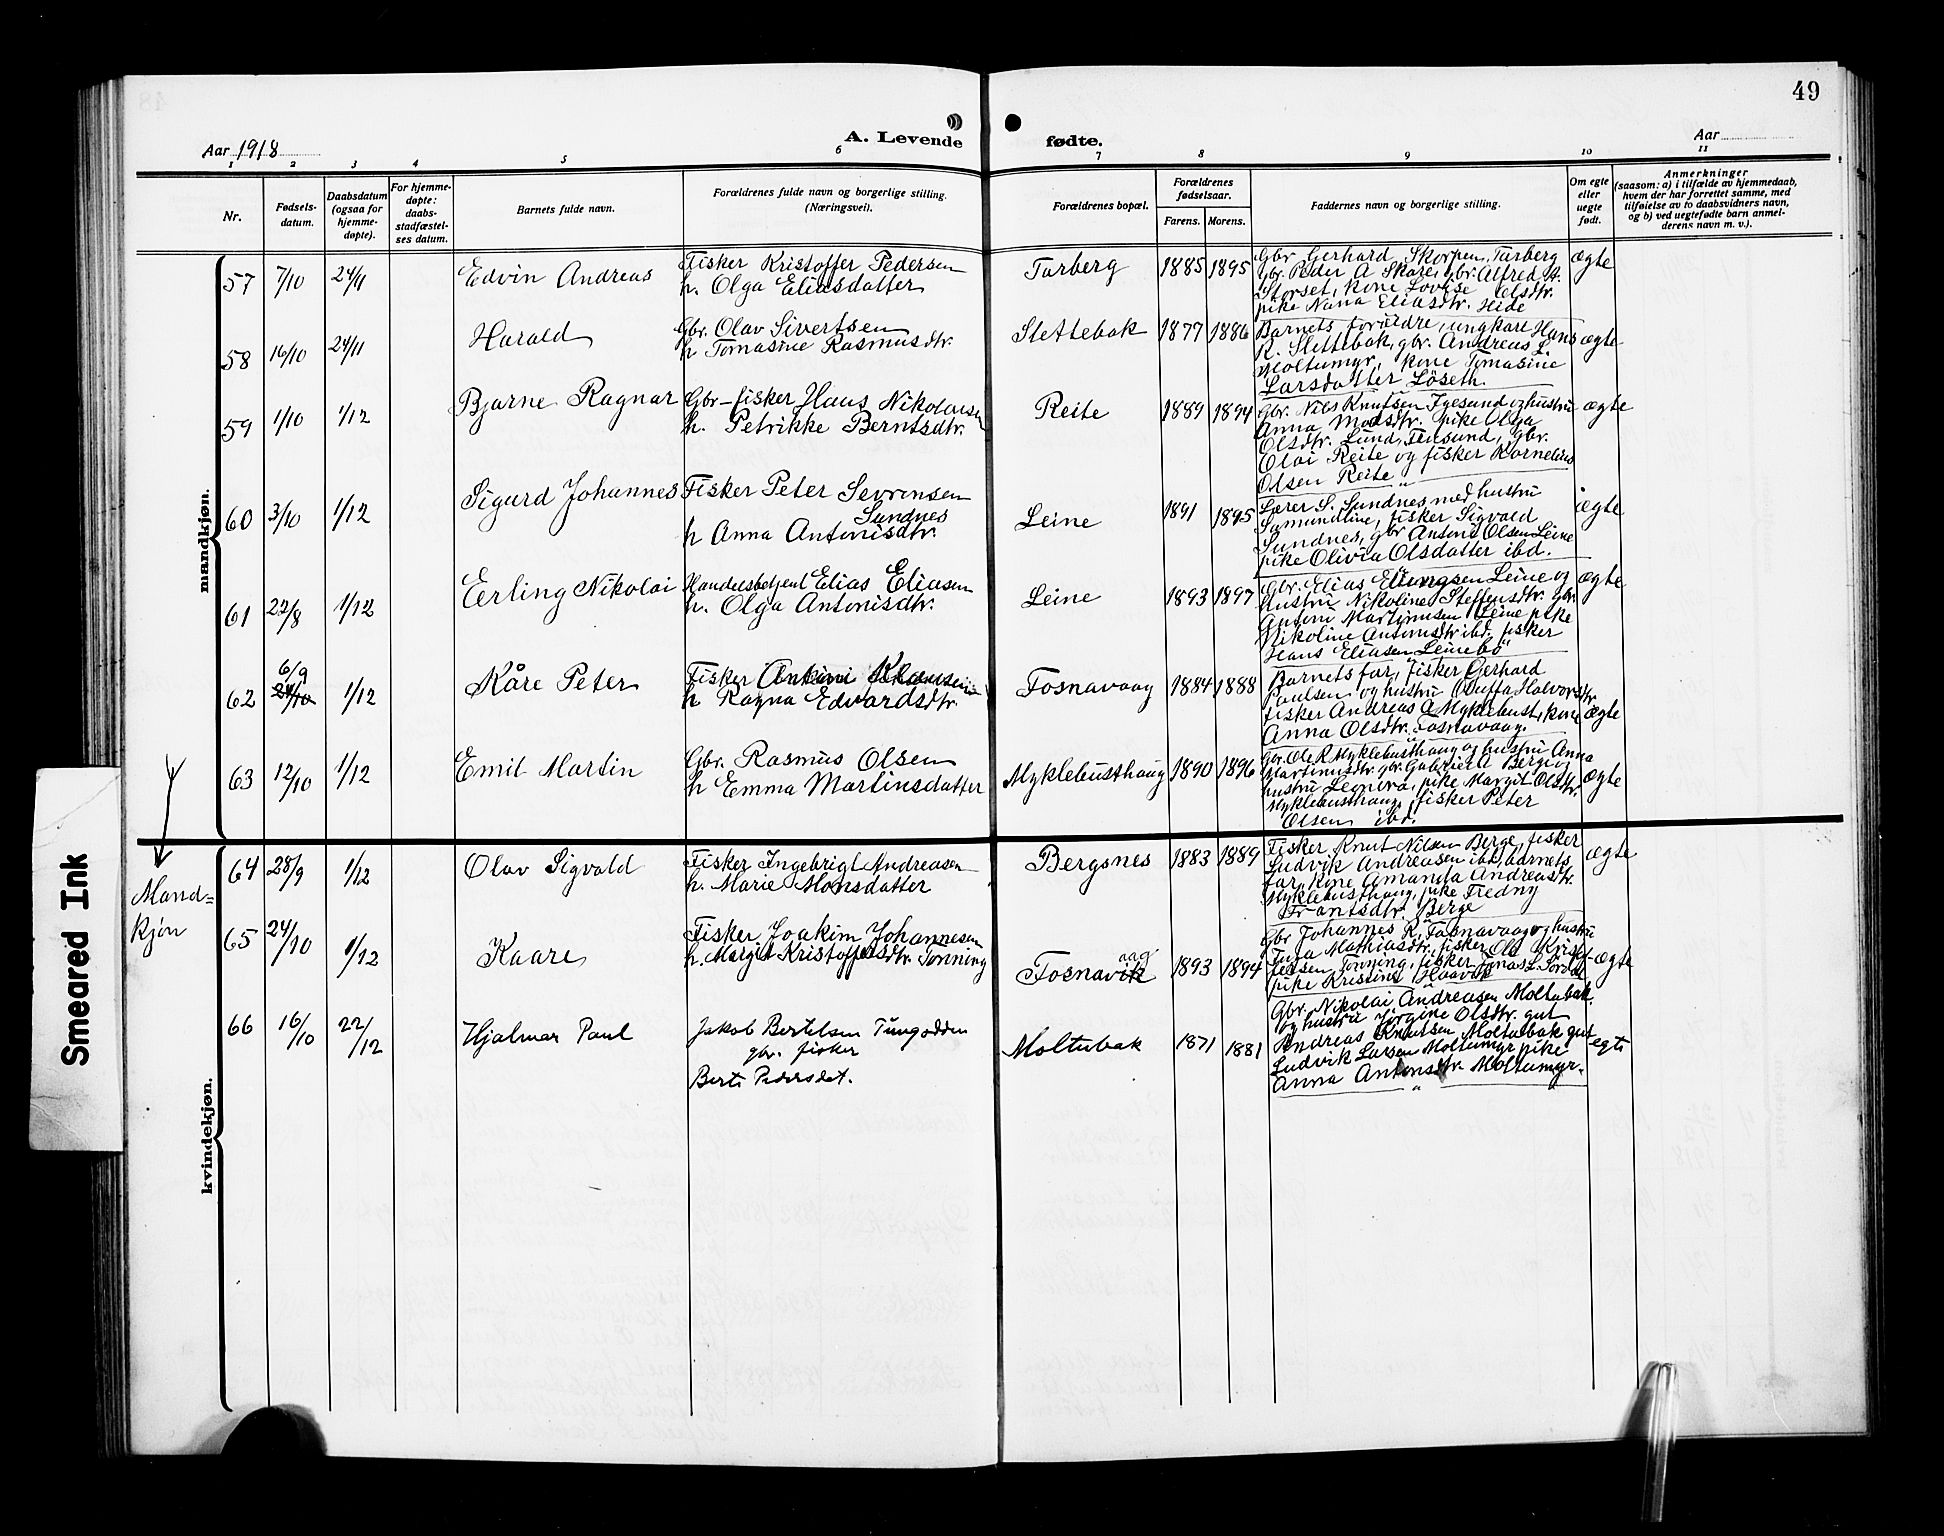 49
Aar 1918
A. Levende
fødte.
Aar
1 2 3 4 5 6 7 8 9 10 11
Nr.
Fødsels-
datum.
Daabsdatum
(ogsaa for
hjemme-
døpte).
For hjemme-
døpte:
daabs-
stadfæstel-
ses datum.
Barnets fulde navn.
Forældrenes fulde navn og borgerlige stilling.
(Næringsvei).
Forældrenes bopæl.
Forældrenes
fødselsaar.
Farens. Morens.
Faddernes navn og borgerlige stilling.
Om egte
eller
uegte
født.
Anmerkninger
(saasom: a) i tilfælde av hjemmedaab,
hvem der har forrettet samme, med
tilføielse av to daabsvidners navn,
og b) ved uegtefødte barn anmel-
derens navn m. v.).
mandkjøn.
57 7/10 24/11 Edvin Andreas
Fisker Kristoffer Pedersen
h. Olga Eliasdatter
Tarberg 1885 1895
Gbr. Gerhard Skorpen, Tarberg
gbr. Peder A Skare, gbr. Alfred H.
Storset, kone Lovise Olsdtr.
pike Nana Eliasdtr. Hide
ægte
58 16/10 24/11 Harald
Gbr. Olav Sivertsen
h Tomasine Rasmusdtr.
Slettebak 1877 1886
Barnets forældre, ungkarl Hans
R. Slettebak, gbr. Andreas L
Moltumyr, kone Tomasine
Larsdatter Löseth.
ægte
59 1/10 1/12 Bjarne Ragnar
Gbr-fisker Hans Nikolaisen
h. Petrikke Berntsdtr.
Reite 1889 1894
Gbr. Nils Knutsen Igesund og hustru
Anna Madsdtr. pike Olga
Olsdtr. Lund, gbr.
Olai Reite og fisker Kornelius
Olsen Reite
ægte
60 3/10 1/12 Sigurd Johannes
Fisker Peter Sevrinsen
Sundnes
h Anna Antonisdtr.
Leine 1891 1895
Lærer S. Sundnes med hustru
Samundine, fisker Sigvald
Sundnes, gbr Antoni Olsen Leine
pike Olivia Olsdatter ibd.
ægte
61 22/8 1/12 Erling Nikolai
Handelsbetjent Elias Eliasen
h. Olga Antonisdtr.
Leine 1893 1897
Gbr. Elias Ellingsen Leine og
hustru Nikoline Steffensdtr. gbr.
Antoni Martinusen Leine pike
Nikoline Antonisdtr ibd. fisker
Hans Eliasen Leinebö
ægte
62 6/9 24/10 1/12 Kåre Peter
Fisker Antoni Klausen
h Ragna Edvardsdtr.
Fosnavaag 1884 1888
Barnets far, fisker Gerhard
Paulsen og hustru Oluffa Halvorsdtr
fisker Andreas A Myklebust, kone
Anna Olsdtr. Fosnavaag.
ægte
63 12/10 1/12 Emil Martin
Gbr. Rasmus Olsen
h Emma Martinsdatter
Myklebusthaug 1890 1896
Gbr. Ole R Myklebusthaug og hustru Anna
Martinusdtr. gbr. Gabriel A Berge og
hustru Leonora, pike Margit Olsdtr.
Myklebusthaug, fisker Peter
Olsen ibd.
ægte
Mand=
kjøn
kvindekjøn.
64 28/9 1/12 Olav Sigvald
Fisker Ingebrigt Andreasen
h. Marie Monsdatter
Bergsnes 1883 1889
Fisker Knut Nilsen Berge, fisker
Ludvik Andreasen ibd, barnets
far, kone Amanda Andreasdtr.
Myklebusthaug, pike Fredny
Frantsdtr. Berge
ægte
65 24/10 1/12 Kaare
Fisker Joakim Johannesen
h. Margit Kristoffersdtr. Tonning
aag
Fosnavik 1893 1894
Gbr Johannes R. Fosnavaag og hustru
Mathiasdtr, fisker Ole Kristof-
fersen Tonning, fisker Jonas L. Sordal
pike Kristine Haavik
ægte
66 16/10 22/12 Hjalmar Paul
Jakob Bertelsen Tungodden
gbr. fisker
Berte Pedersdat.
Moltubak 1871 1881
Gbr. Nikolai Andreasen Moltubak
og hustru Jørgine Olsdtr. gut
Andreas Knutsen Moltubak gut
Ludvik Larsen Moltumyr pike
Anna Antonsdtr. Moltumyr.
egte
Smeared Ink